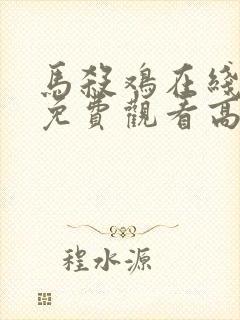 馬殺鸡在綫
免費觀看高
程水源